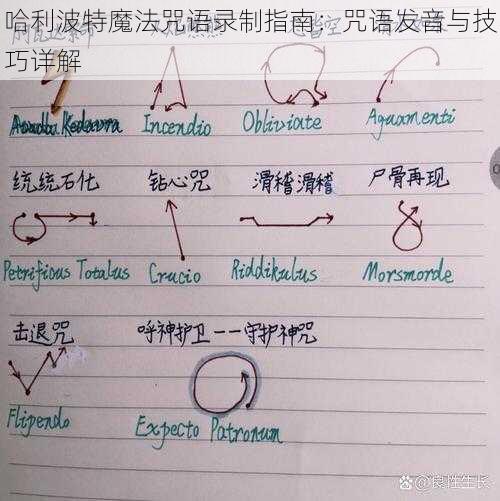 哈利波特魔法咒语录制指南：咒语发音与技
巧详解
Incendio Obliviate Aguamenti
统统石化 钻心咒 滑稽滑稽 尸骨再现
Petrificus Totalus Crucio Riddikulus Morsmorde
击退咒 呼神护卫——守护神咒
Flipendo Expecto Patronum
@良性生长